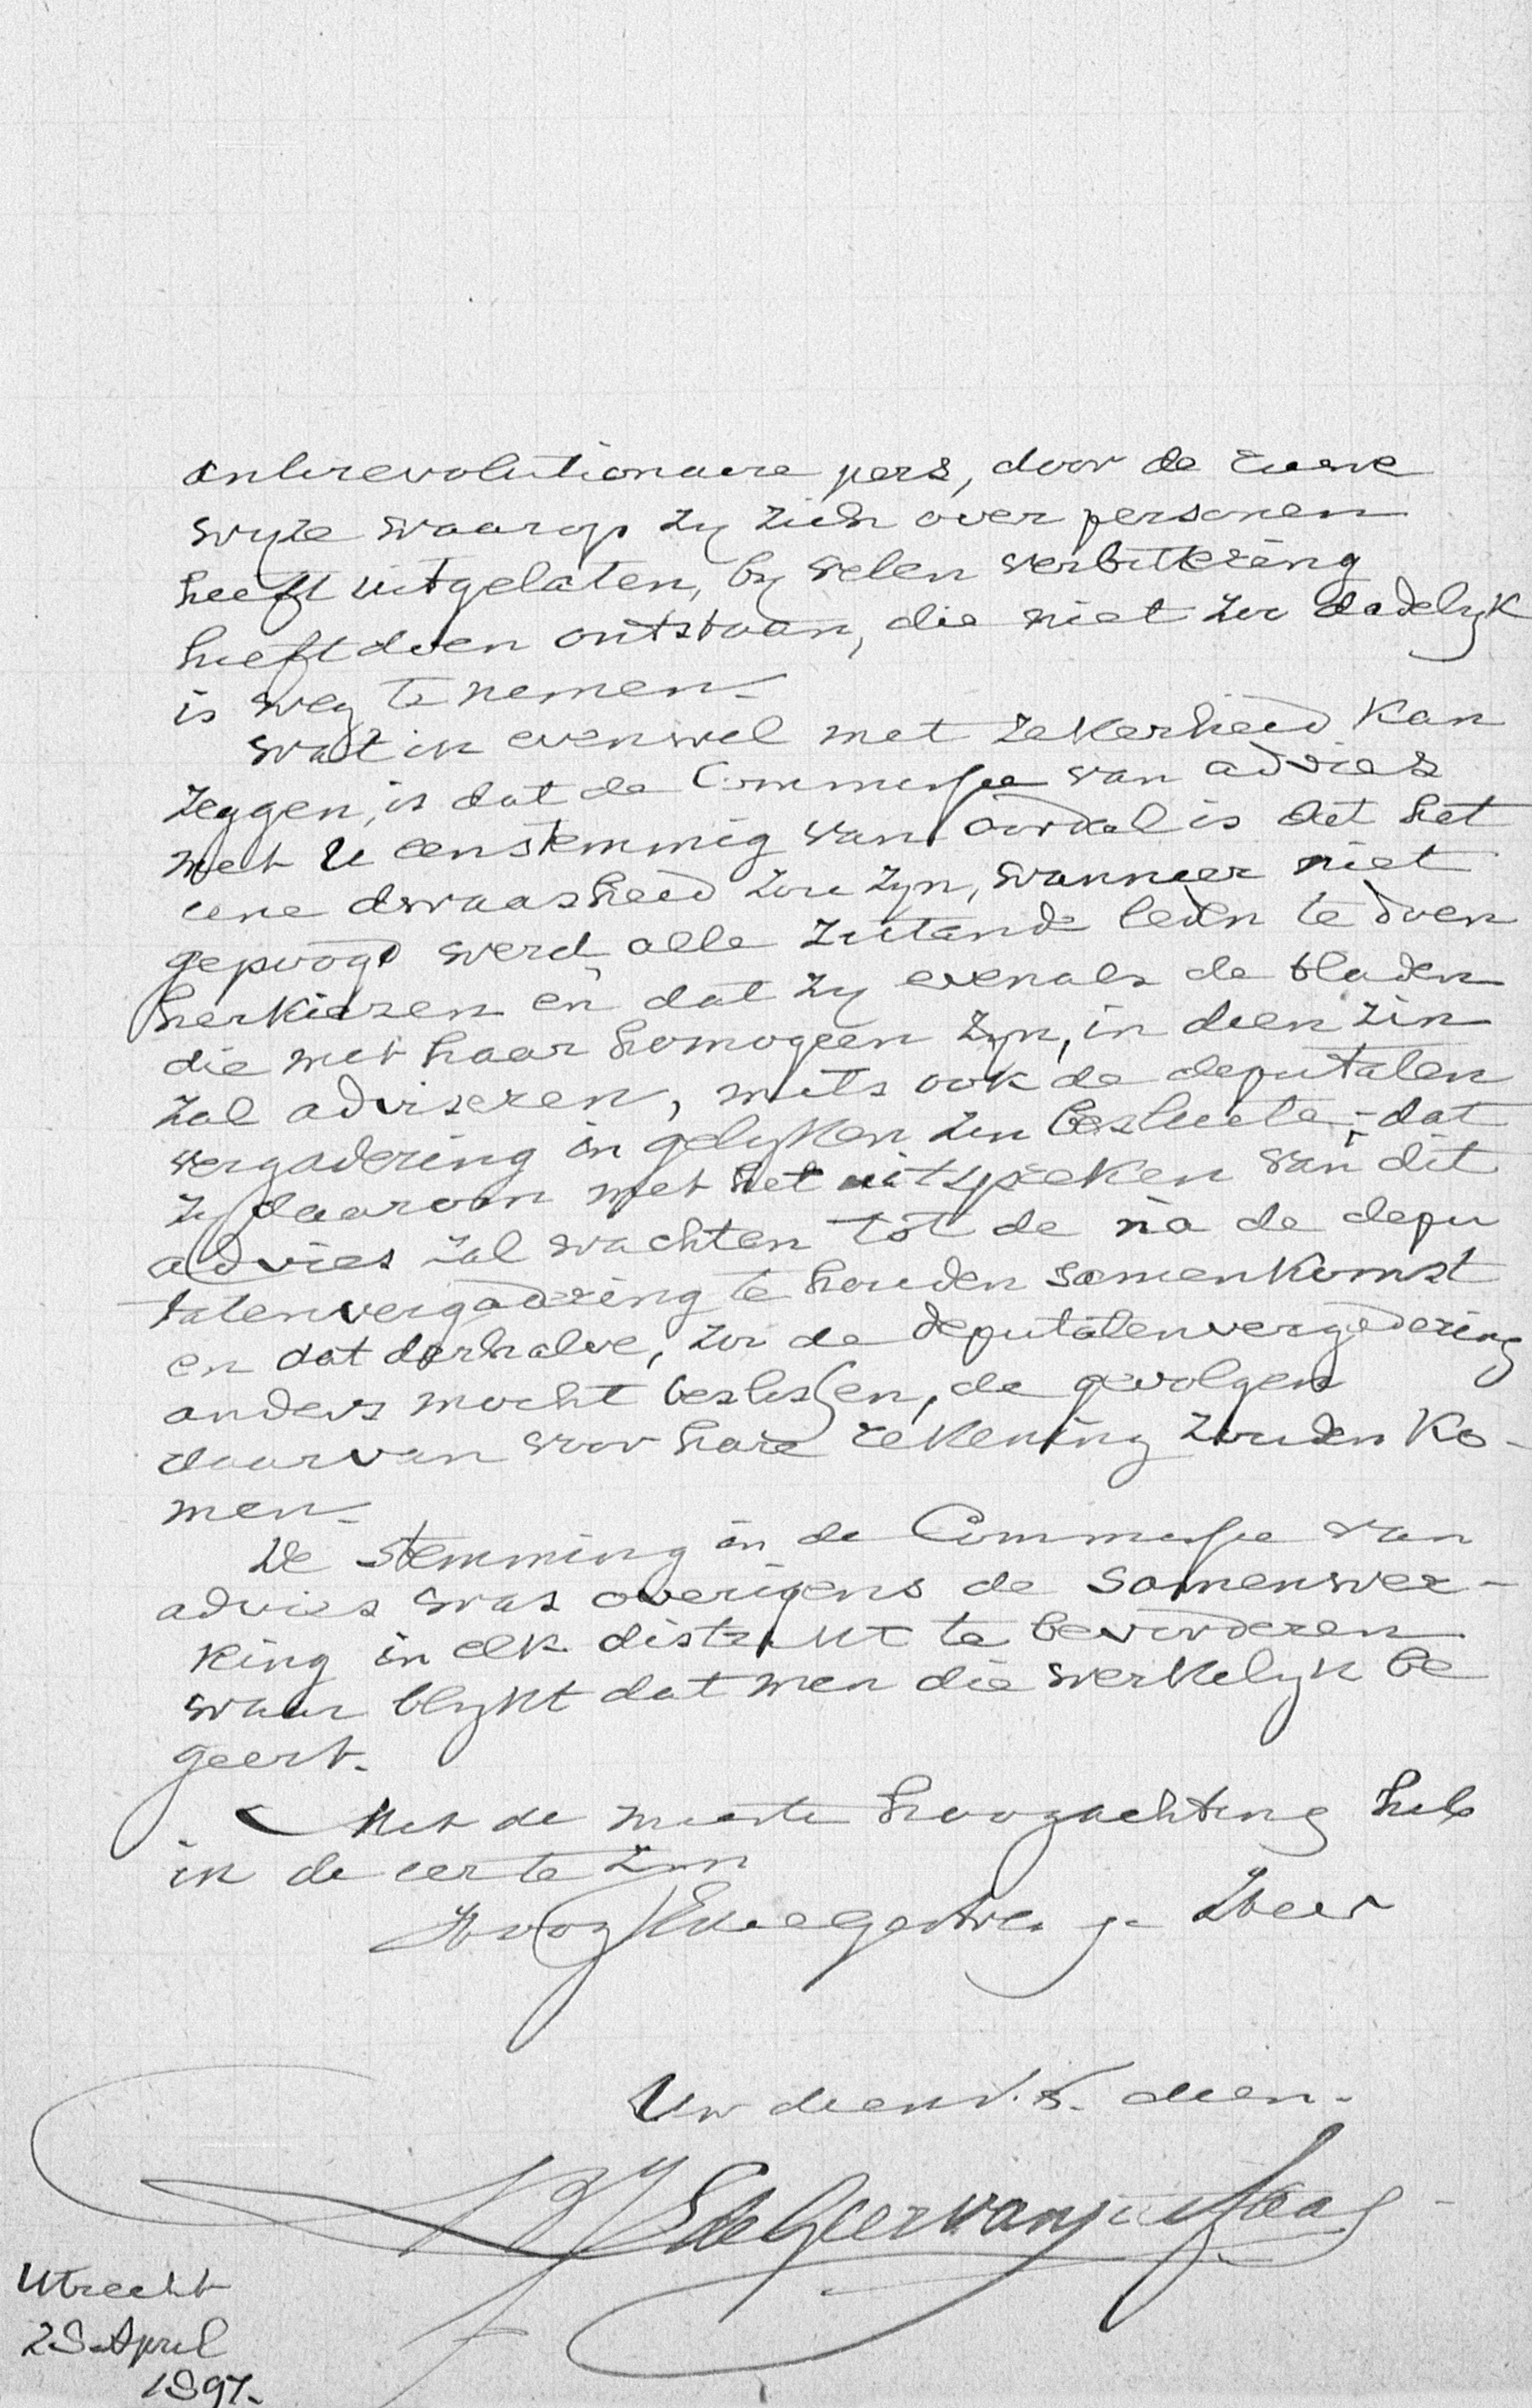 antirevolutionaire pers, door de ruwe
wyze waarop zy zich over personen
heeft uitgelaten, by velen verbittering
heeft doen ontstaan, die niet zoo dadelyk
is weg te nemen.
Wat ik evenwel met zekerheid kan
zeggen, is dat de Commissie van advies
met U eenstemmig van oordeel is dat het
eene dwaasheid zou zyn, wanneer niet
gepoogd werd alle zittende leden te doen
herkiezen en dat zy evenals de bladen
die met haar homogeen zyn, in dien zin
zal adviseren, mits ook de deputaten
vergadering in gelyken zin besluite; dat
zy daarom met het uitspreken van dit
advies zal wachten tot de na de depu
tatenvergadering te houden samenkomst
en dat derhalve, zoo de deputatenvergadering
anders mocht beslissen, de gevolgen
daarvan voor hare rekening zouden ko-
men.
De stemming in de Commissie van
advies was overigens de samenwer-
king in elk district te bevorderen
waar blykt dat men die werkelyk be
geert.
Met de meeste hoogachting heb
ik de eer te zyn
HoogEdelgestrenge Heer
Uw dienstv. dien.
de Geer van Jutfaas
Utrecht
28 April
1897.